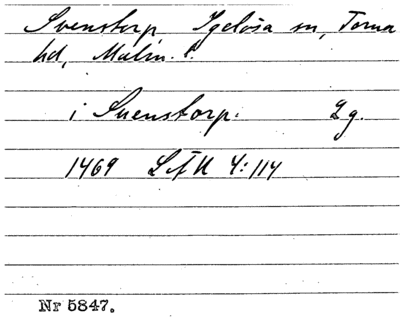 Svenstorp Igelösa sn, Torna
hd, Malm. l.
i Suenstorp. 2 g.
1469 LÄU 4:114
Nr 5847.